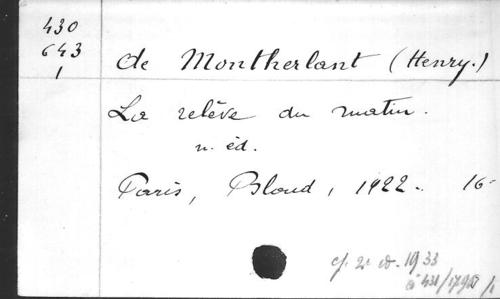 430
643
1
de Montherlant (Henry.)
La relève du matin.
n. éd.
Paris, Bloud, 1922. 16-
cf. 2e éd. 1933
à 431/